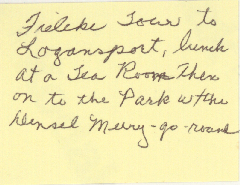 Fieldke Tour to
Logansport, lunch
at a Tea Room Then
on to the Park w/the
Densel Merry-go-round